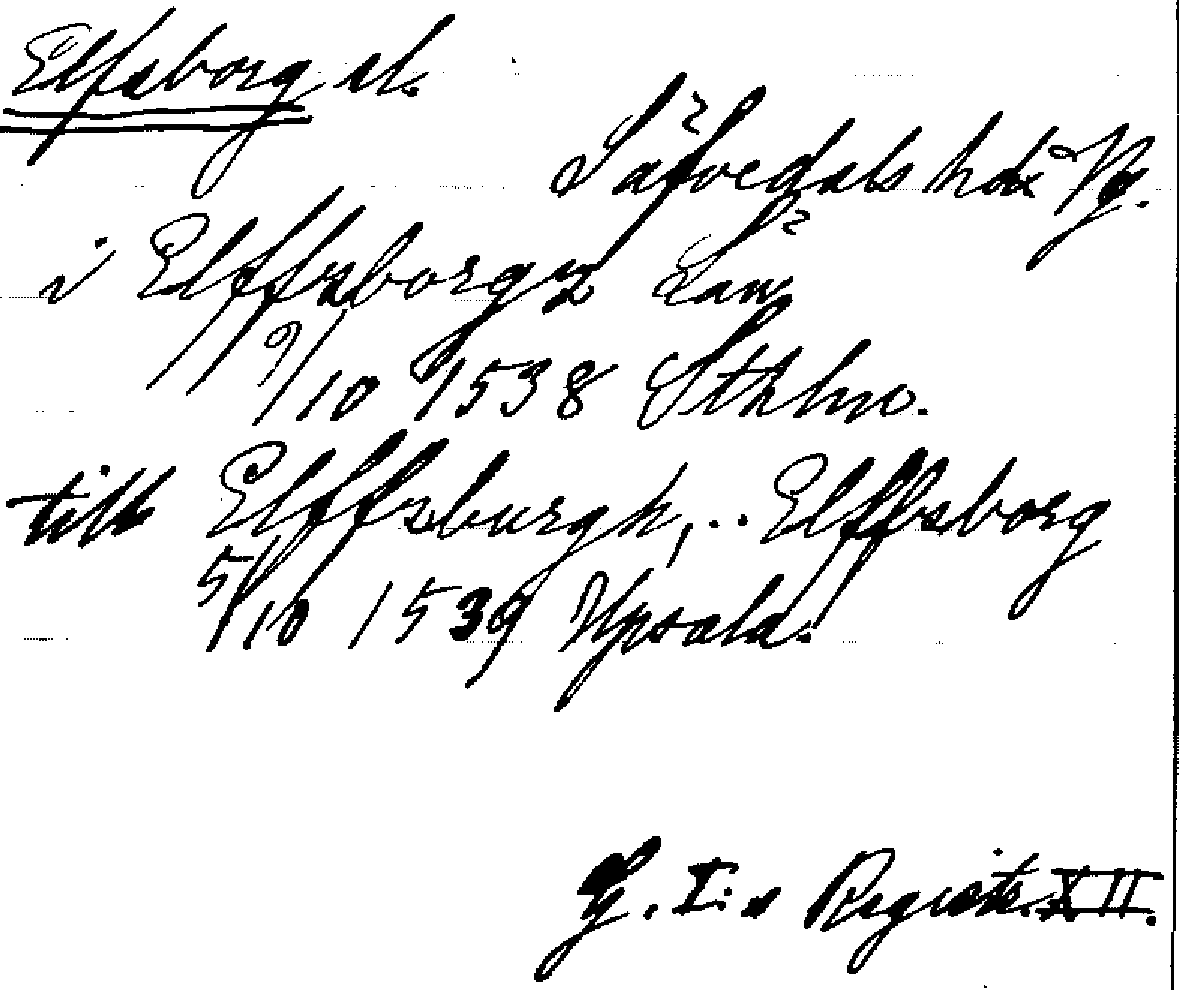 Elfsborg sl.
Säfvedals hd Vg.
i Elffzborgz Län
9/10 1538 Sthlm.
till Elffzburgh, .. Elffsborg
5/10 1539 Upsala.
G. I:s Registr. XII.